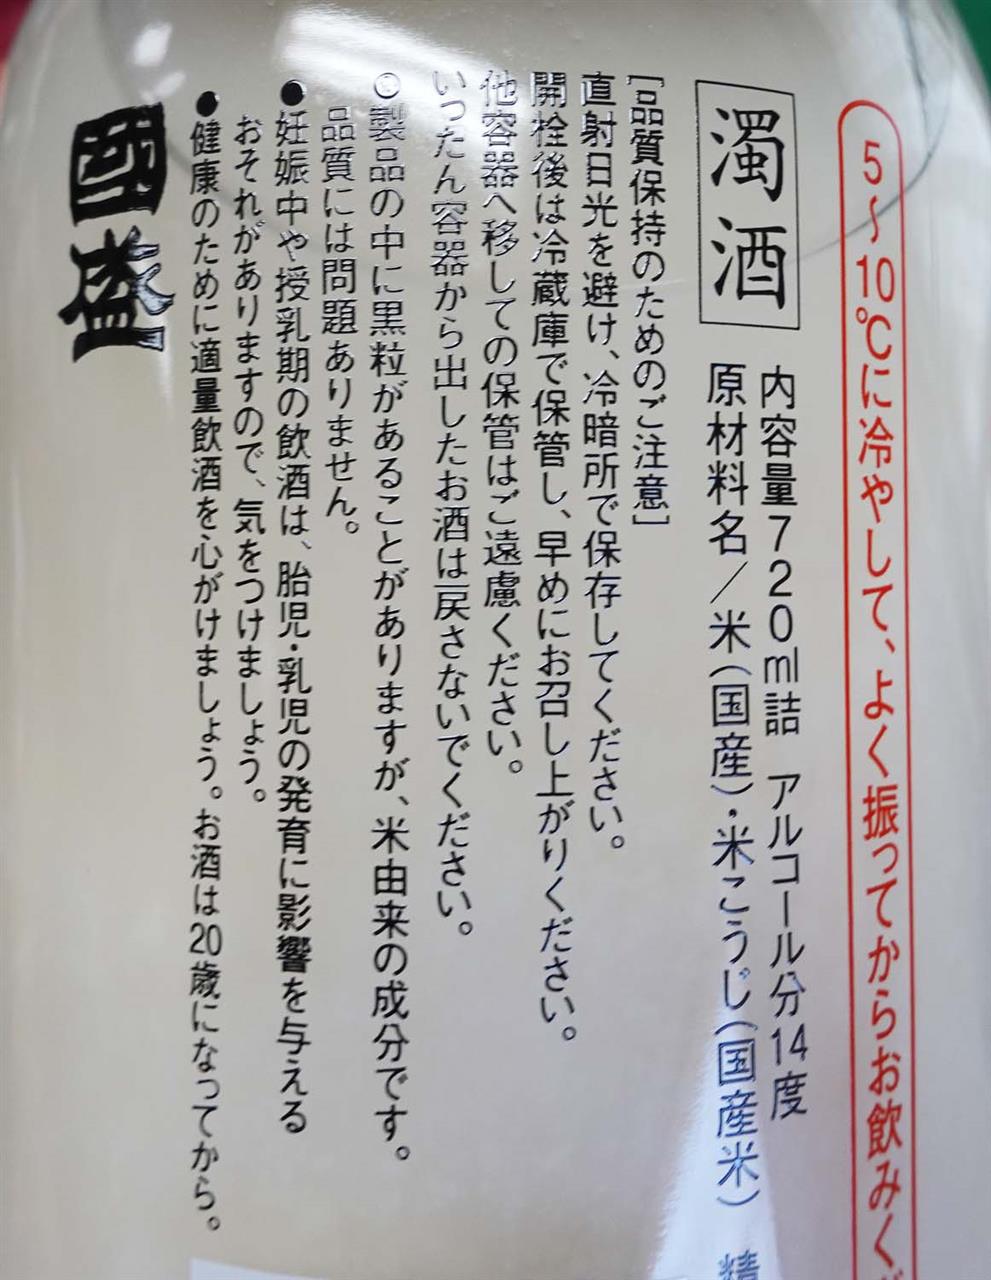 5〜10℃に冷やして、よく振ってからお飲みく
濁酒
内容量720ml詰 アルコール分14度
原材料名/米(国産)・米こうじ(国産米) 精
[品質保持のためのご注意]
直射日光を避け、冷暗所で保存してください。
開栓後は冷蔵庫で保管し、早めにお召し上がりください。
他容器へ移しての保管はご遠慮ください。
いったん容器から出したお酒は戻さないでください。
◎製品の中に黒粒があることがありますが、米由来の成分です。
品質には問題ありません。
●妊娠中や授乳期の飲酒は、胎児・乳児の発育に影響を与える
おそれがありますので、気をつけましょう。
●健康のために適量飲酒を心がけましょう。お酒は20歳になってから。
國盛